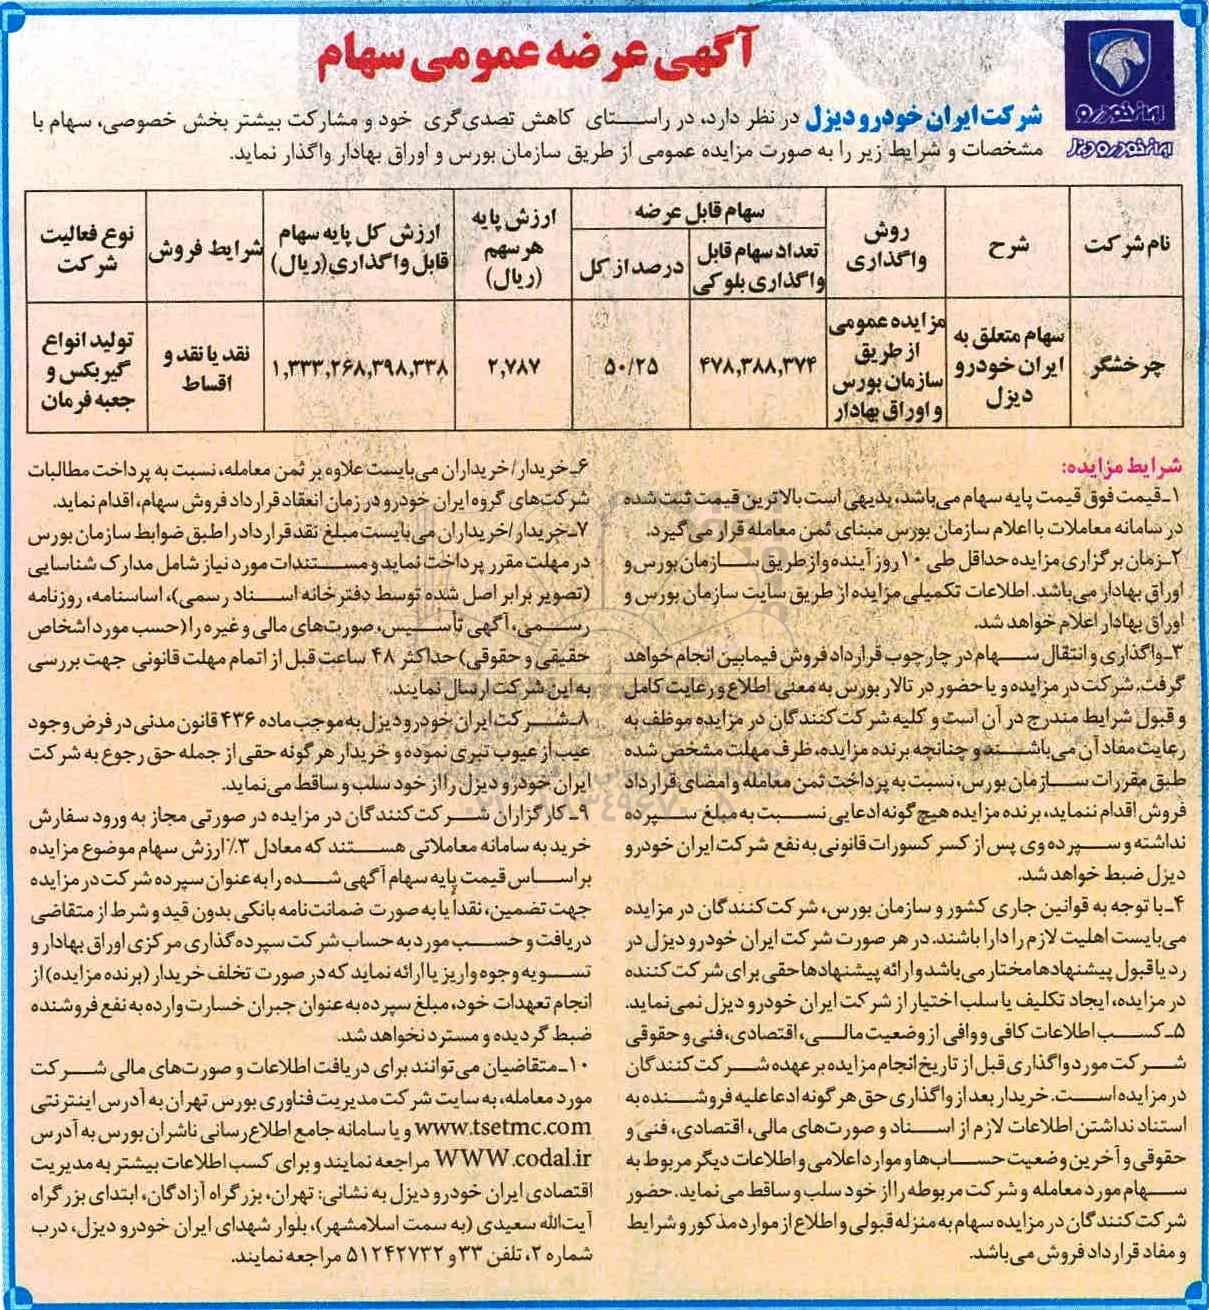 آگهی عرضه عمومی سهام
ایران خودرو
ایران خودرو دیزل
شرکت ایران خودرو دیزل در نظر دارد، در راستای کاهش تصدی‌گری خود و مشارکت بیشتر بخش خصوصی، سهام با
مشخصات و شرایط زیر را به صورت مزایده عمومی از طریق سازمان بورس و اوراق بهادار واگذار نماید.
نام شرکت
شرح
روش
واگذاری
سهام قابل عرضه
تعداد سهام قابل
واگذاری بلوکی
درصد از کل
ارزش پایه
هر سهم
(ریال)
ارزش کل پایه سهام
قابل واگذاری (ریال)
شرایط فروش
نوع فعالیت
شرکت
چرخشگر
سهام متعلق به
ایران خودرو
دیزل
مزایده عمومی
از طریق
سازمان بورس
و اوراق بهادار
۴۷۸,۳۸۸,۳۷۴
۵۰/۲۵
۲,۷۸۷
۱,۳۳۳,۲۶۸,۳۹۸,۳۳۸
نقد یا نقد و
اقساط
تولید انواع
گیربکس و
جعبه فرمان
شرایط مزایده:
۱ـ قیمت فوق قیمت پایه سهام می‌باشد، بدیهی است بالاترین قیمت ثبت شده
در سامانه معاملات با اعلام سازمان بورس مبنای ثمن معامله قرار می‌گیرد.
۲ـ زمان برگزاری مزایده حداقل طی ۱۰ روز آینده و از طریق سازمان بورس و
اوراق بهادار می‌باشد. اطلاعات تکمیلی مزایده از طریق سایت سازمان بورس و
اوراق بهادار اعلام خواهد شد.
۳ـ واگذاری و انتقال سهام در چارچوب قرارداد فروش فیمابین انجام خواهد
گرفت. شرکت در مزایده و یا حضور در تالار بورس به معنی اطلاع و رعایت کامل
و قبول شرایط مندرج در آن است و کلیه شرکت‌کنندگان در مزایده موظف به
رعایت مفاد آن می‌باشند و چنانچه برنده مزایده، ظرف مهلت مشخص شده
طبق مقررات سازمان بورس، نسبت به پرداخت ثمن معامله و امضای قرارداد
فروش اقدام ننماید، برنده مزایده هیچ گونه ادعایی نسبت به مبلغ سپرده
نداشته و سپرده وی پس از کسر کسورات قانونی به نفع شرکت ایران خودرو
دیزل ضبط خواهد شد.
۴ـ با توجه به قوانین جاری کشور و سازمان بورس، شرکت‌کنندگان در مزایده
می‌بایست اهلیت لازم را دارا باشند. در هر صورت شرکت ایران خودرو دیزل در
رد یا قبول پیشنهادها مختار می‌باشد و ارائه پیشنهادها حقی برای شرکت کننده
در مزایده، ایجاد تکلیف یا سلب اختیار از شرکت ایران خودرو دیزل نمی‌نماید.
۵ـ کسب اطلاعات کافی و وافی از وضعیت مالی، اقتصادی، فنی و حقوقی
شرکت مورد واگذاری قبل از تاریخ انجام مزایده بر عهده شرکت کنندگان
در مزایده است. خریدار بعد از واگذاری حق هر گونه ادعا علیه فروشنده به
استناد نداشتن اطلاعات لازم از اسناد و صورت‌های مالی، اقتصادی، فنی و
حقوقی و آخرین وضعیت حساب‌ها و موارد اعلامی و اطلاعات دیگر مربوط به
سهام مورد معامله و شرکت مربوطه را از خود سلب و ساقط می‌نماید. حضور
شرکت کنندگان در مزایده سهام به منزله قبولی و اطلاع از موارد مذکور و شرایط
و مفاد قرارداد فروش می‌باشد.
۶ـ خریدار/خریداران می‌بایست علاوه بر ثمن معامله، نسبت به پرداخت مطالبات
شرکت‌های گروه ایران خودرو در زمان انعقاد قرارداد فروش سهام، اقدام نماید.
۷ـ خریدار/خریداران می‌بایست مبلغ نقد قرارداد را طبق ضوابط سازمان بورس
در مهلت مقرر پرداخت نماید و مستندات مورد نیاز شامل مدارک شناسایی
(تصویر برابر اصل شده توسط دفترخانه اسناد رسمی)، اساسنامه، روزنامه
رسمی، آگهی تأسیس، صورت‌های مالی و غیره را (حسب مورد اشخاص
حقیقی و حقوقی) حداکثر ۴۸ ساعت قبل از اتمام مهلت قانونی جهت بررسی
به این شرکت ارسال نمایند.
۸ـ شرکت ایران خودرو دیزل به موجب ماده ۴۳۶ قانون مدنی در فرض وجود
عیب از عیوب تبری نموده و خریدار هر گونه حقی از جمله حق رجوع به شرکت
ایران خودرو دیزل را از خود سلب و ساقط می‌نماید.
۹ـ کارگزاران شرکت کنندگان در مزایده در صورتی مجاز به ورود سفارش
خرید به سامانه معاملاتی هستند که معادل ۳٪ ارزش سهام موضوع مزایده
بر اساس قیمت پایه سهام آگهی شده را به عنوان سپرده شرکت در مزایده
جهت تضمین، نقداً یا به صورت ضمانت‌نامه بانکی بدون قید و شرط از متقاضی
دریافت و حسب مورد به حساب شرکت سپرده‌گذاری مرکزی اوراق بهادار و
تسویه وجوه واریز یا ارائه نماید که در صورت تخلف خریدار (برنده مزایده) از
انجام تعهدات خود، مبلغ سپرده به عنوان جبران خسارت وارده به نفع فروشنده
ضبط گردیده و مسترد نخواهد شد.
۱۰ـ متقاضیان می‌توانند برای دریافت اطلاعات و صورت‌های مالی شرکت
مورد معامله، به سایت شرکت مدیریت فناوری بورس تهران به آدرس اینترنتی
www.tsetmc.com و یا سامانه جامع اطلاع‌رسانی ناشران بورس به آدرس
WWW.codal.ir مراجعه نمایند و برای کسب اطلاعات بیشتر به مدیریت
اقتصادی ایران خودرو دیزل به نشانی: تهران، بزرگراه آزادگان، ابتدای بزرگراه
آیت‌الله سعیدی (به سمت اسلامشهر)، بلوار شهدای ایران خودرو دیزل، درب
شماره ۲، تلفن ۳۳ و ۵۱۲۴۲۷۳۲ مراجعه نمایند.